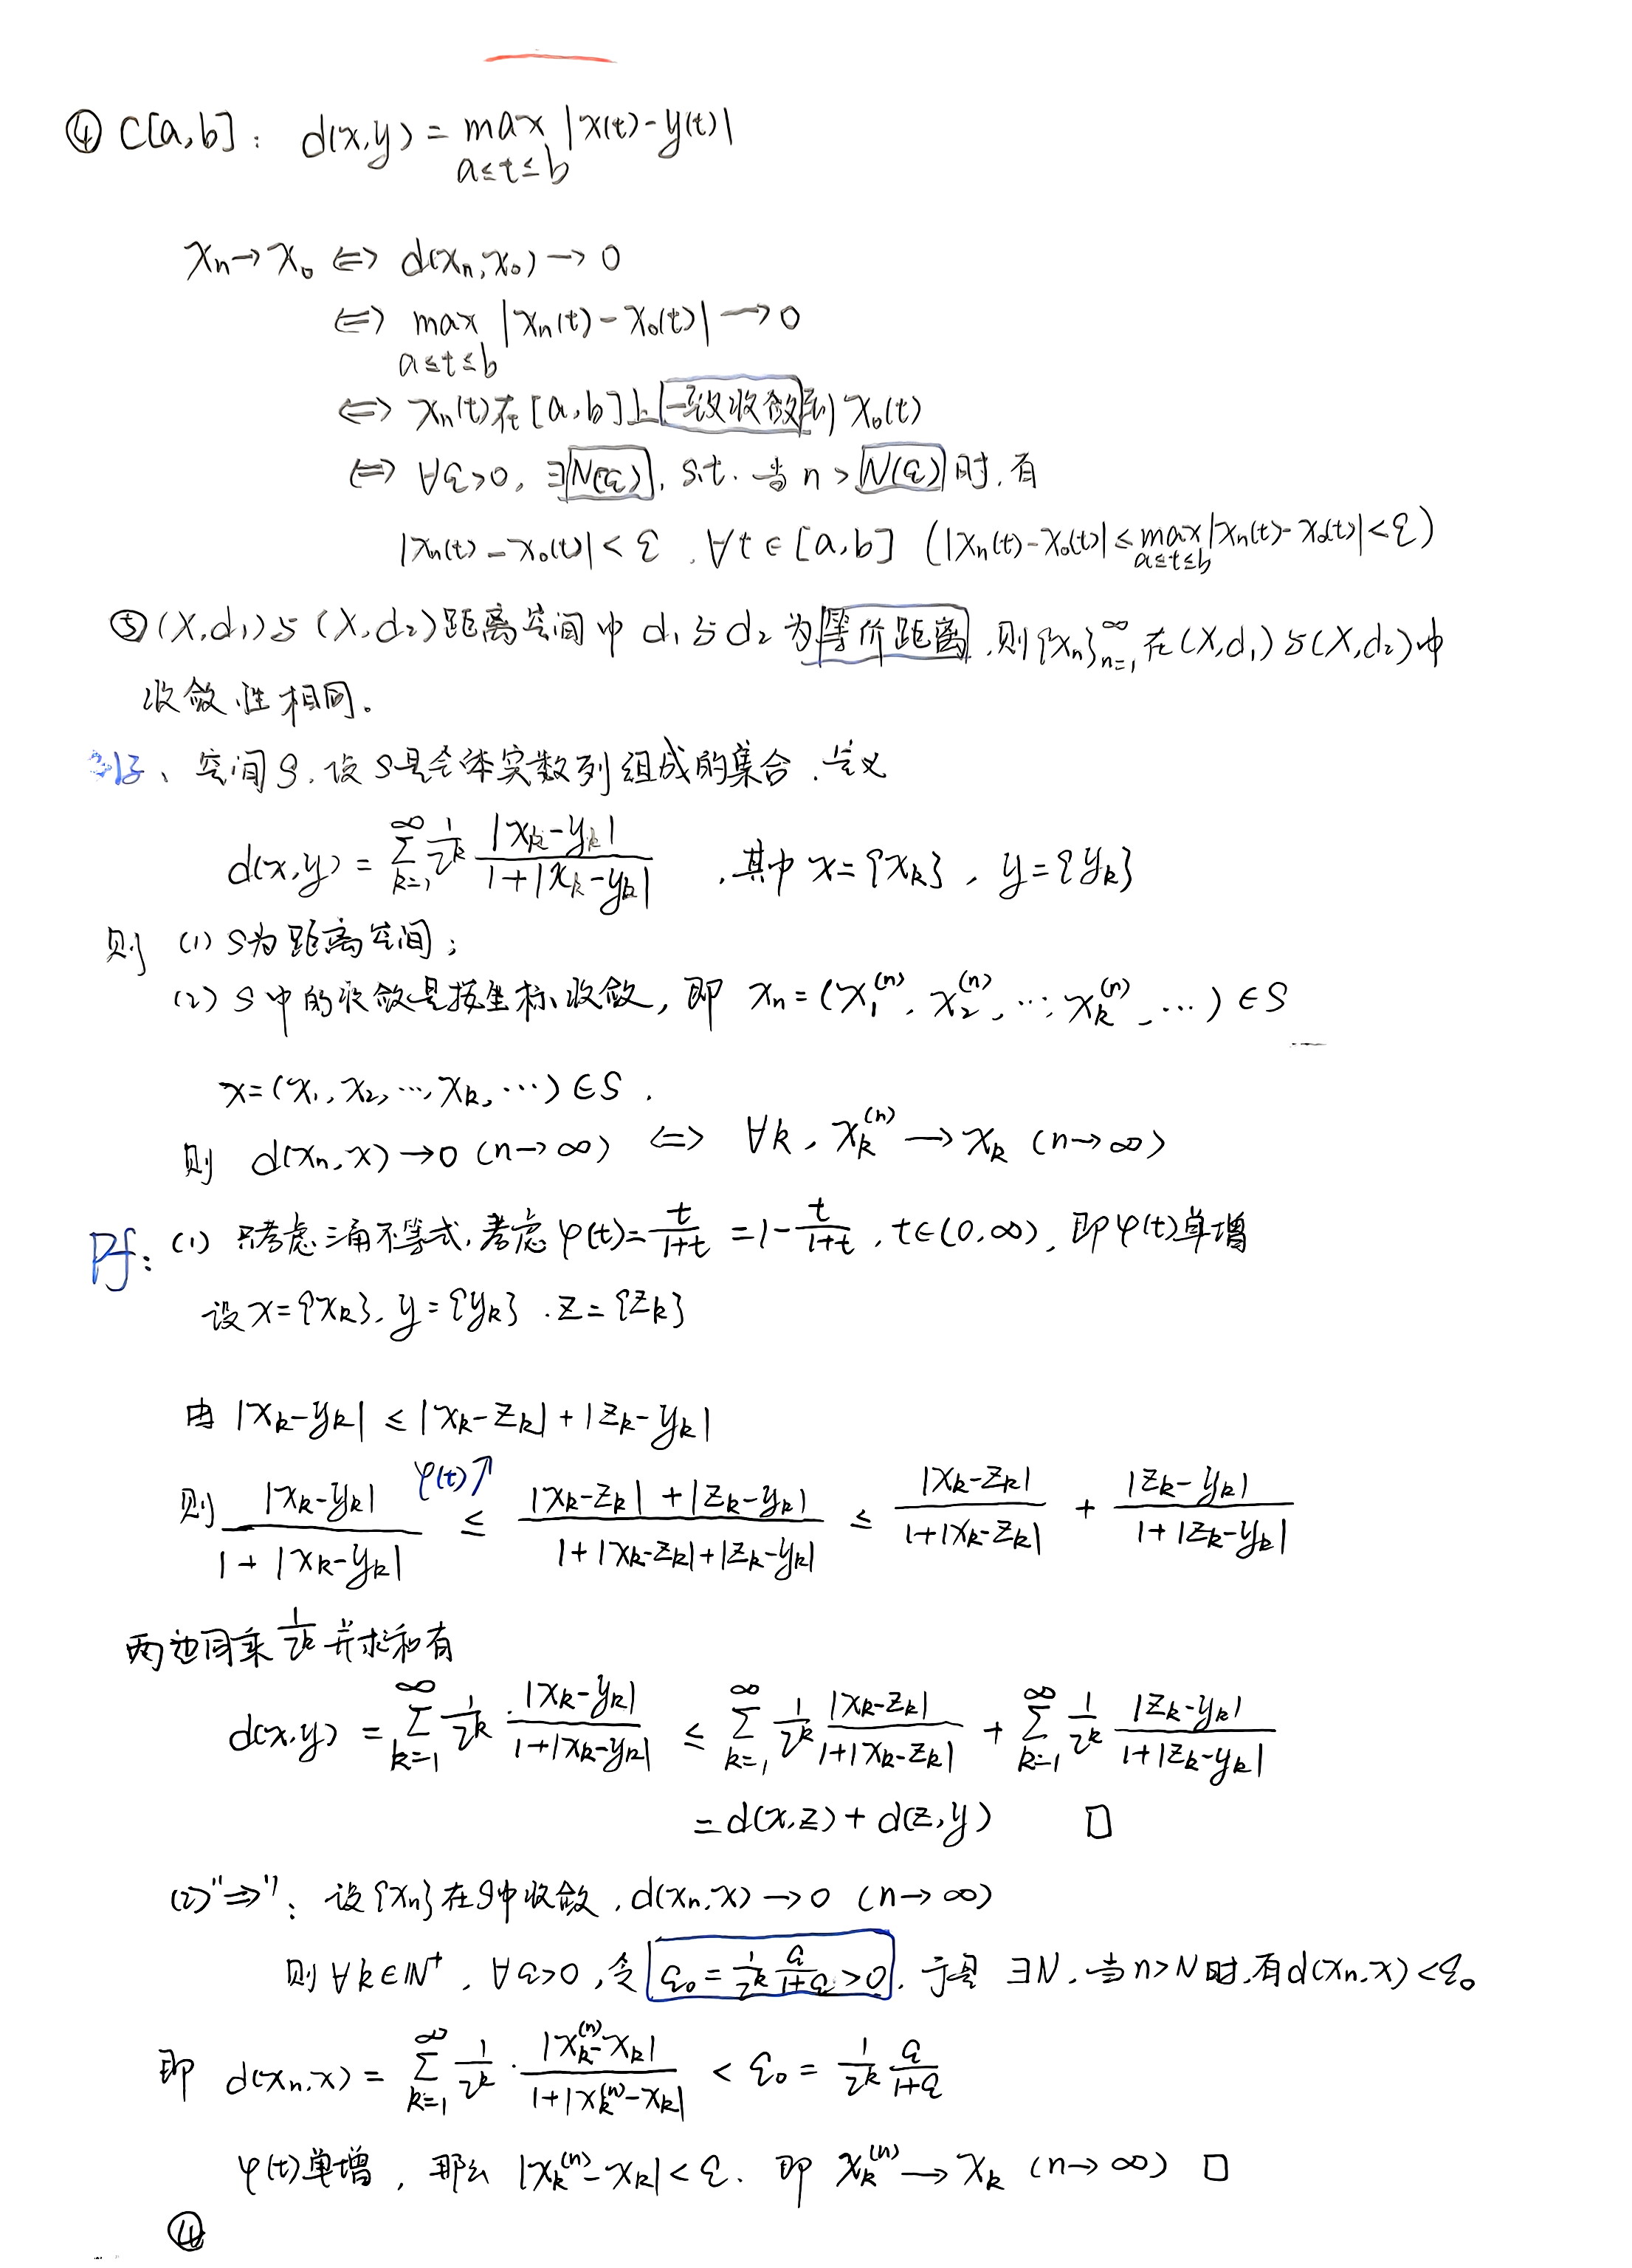 ④ C[a,b]: d(x,y) = max_{a≤t≤b} |x(t)-y(t)|
xₙ→x₀ ⇔ d(xₙ,x₀)→0
⇔ max_{a≤t≤b} |xₙ(t)-x₀(t)| →0
⇔ xₙ(t)在[a,b]上一致收敛到x₀(t)
⇔ ∀ε>0, ∃N(ε), s.t. 当n>N(ε)时,有
|xₙ(t)-x₀(t)|<ε, ∀t∈[a,b] (|xₙ(t)-x₀(t)| ≤ max_{a≤t≤b}|xₙ(t)-x₀(t)|<ε)
⑤(X,d₁)与(X,d₂)距离空间中d₁与d₂为等价距离,则{xₙ}_{n=1}^∞在(X,d₁)与(X,d₂)中
收敛性相同。
例、空间S.设S是全体实数列组成的集合.定义
d(x,y) = ∑_{k=1}^∞ 1/2^k |x_k-y_k|/(1+|x_k-y_k|) ,其中x={x_k}, y={y_k}
则 (1) S为距离空间;
(2) S中的收敛是按坐标收敛,即 xₙ=(x₁^(n), x₂^(n), …, x_k^(n), …)∈S
x=(x₁, x₂, …, x_k, …)∈S.
则 d(xₙ,x)→0 (n→∞) ⇔ ∀k, x_k^(n)→x_k (n→∞)
Pf: (1) 只考虑三角不等式,考虑φ(t)=t/(1+t) =1-t/(1+t), t∈(0,∞), 即φ(t)单增
设x={x_k}, y={y_k}. z={z_k}
由 |x_k-y_k| ≤ |x_k-z_k|+|z_k-y_k|
则 |x_k-y_k|/(1+|x_k-y_k|) φ(t)↑ ≤ (|x_k-z_k|+|z_k-y_k|)/(1+|x_k-z_k|+|z_k-y_k|) ≤ |x_k-z_k|/(1+|x_k-z_k|) + |z_k-y_k|/(1+|z_k-y_k|)
两边同乘1/2^k并求和有
d(x,y) = ∑_{k=1}^∞ 1/2^k · |x_k-y_k|/(1+|x_k-y_k|) ≤ ∑_{k=1}^∞ 1/2^k |x_k-z_k|/(1+|x_k-z_k|) + ∑_{k=1}^∞ 1/2^k |z_k-y_k|/(1+|z_k-y_k|)
= d(x,z)+d(z,y) □
(2)"⇒": 设{xₙ}在S中收敛, d(xₙ,x)→0 (n→∞)
则∀k∈ℕ⁺, ∀ε>0, 令 ε₀=1/2^k ε/(1+ε)>0, 于是 ∃N, 当n>N时,有d(xₙ,x)<ε₀
即 d(xₙ,x) = ∑_{k=1}^∞ 1/2^k · |x_k^(n)-x_k|/(1+|x_k^(n)-x_k|) < ε₀ = 1/2^k ε/(1+ε)
φ(t)单增, 那么 |x_k^(n)-x_k|<ε. 即 x_k^(n)→x_k (n→∞) □
④